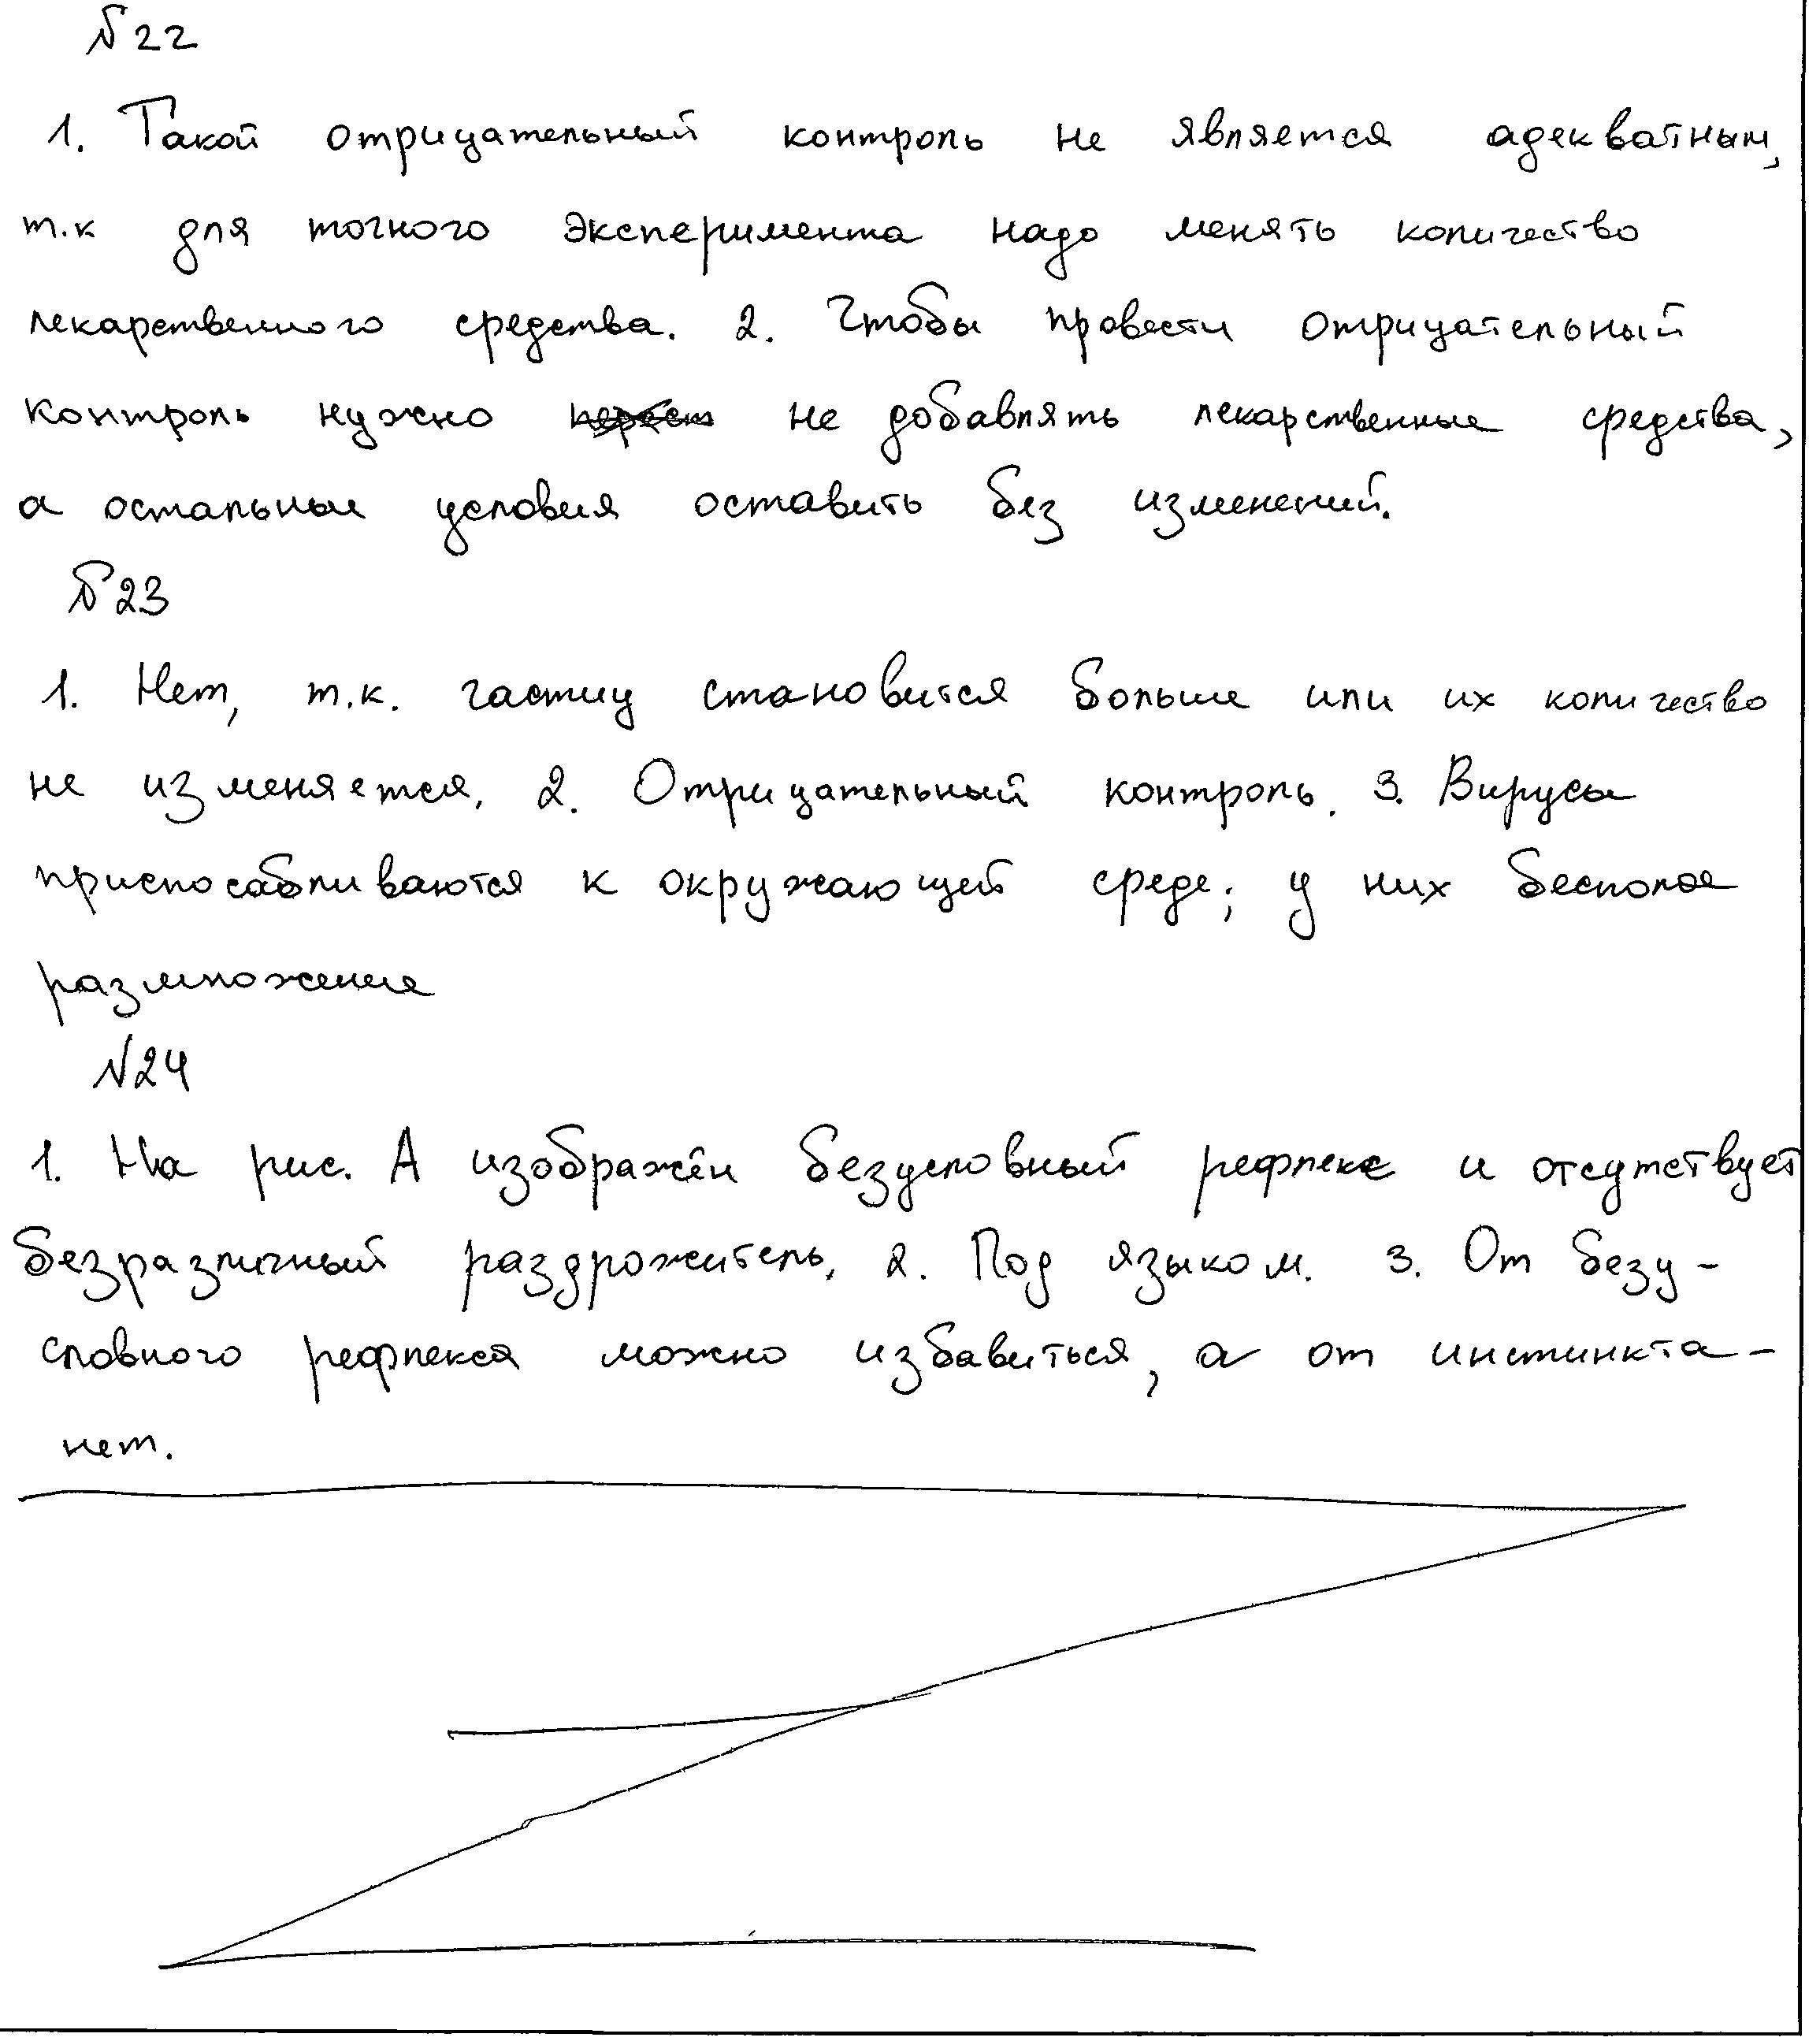 №22
1. Такой отрицательный контроль не является адекватным,
т.к для точного эксперимента надо менять количество
лекарственного средства. 2. Чтобы провести отрицательный
контроль нужно не добавлять лекарственные средства,
а остальные условия оставить без изменений.
№23
1. Нет, т.к. частиц становится больше или их количество
не изменяется. 2. Отрицательный контроль. 3. Вирусы
приспосабливаются к окружающей среде; у них бесполое
размножение
№24
1. На рис. А изображён безусловный рефлекс и отсутствует
безразличный раздрожитель. 2. Под языком. 3. От безу-
словного рефлекса можно избавиться, а от инстинкта-
нет.